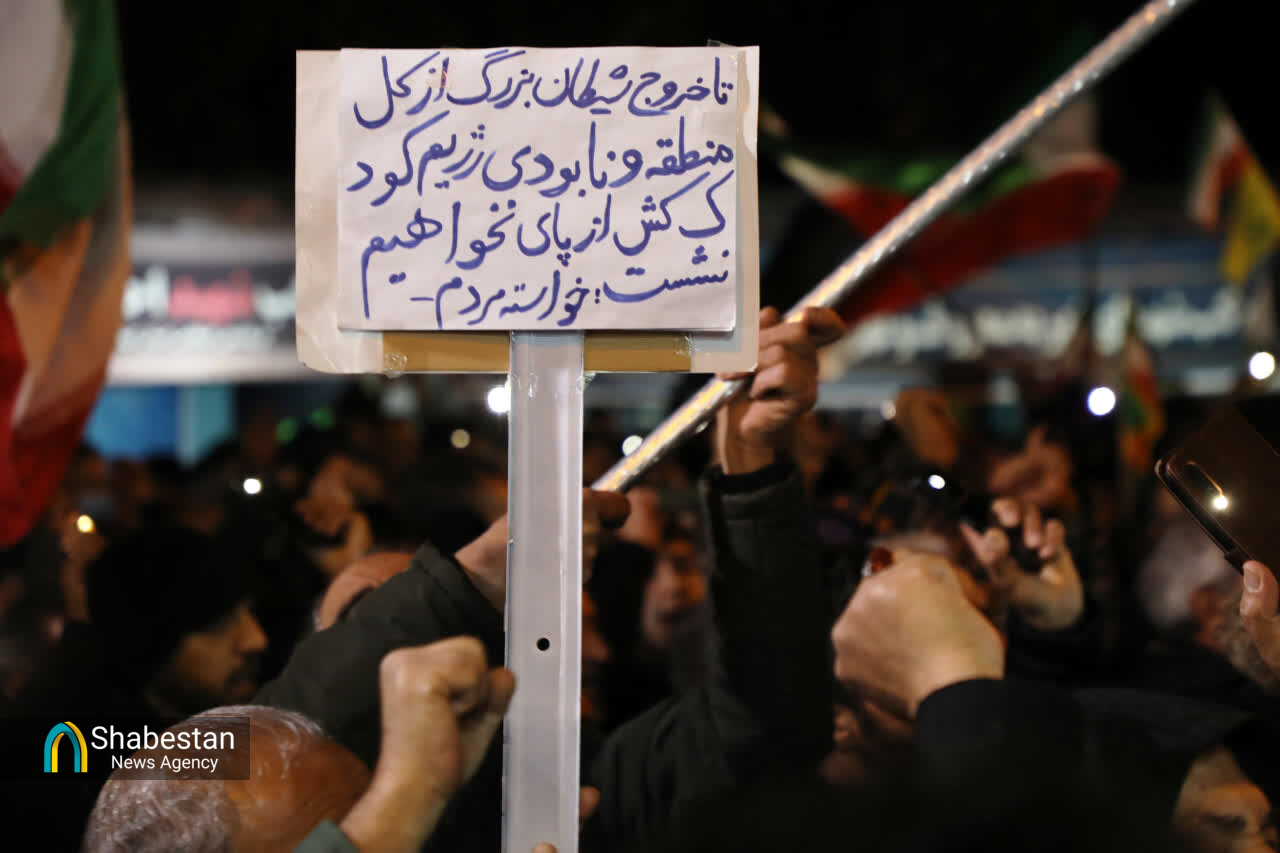 تا خروج شیطان بزرگ از کل
منطقه و نابودی رژیم کود
ک کش از پای نخواهیم
نشست: خواسته مردم -
Shabestan
News Agency